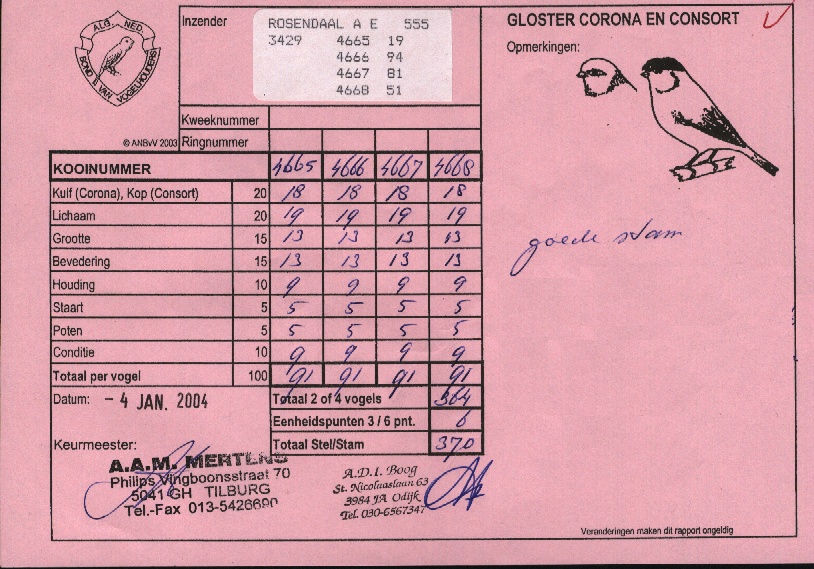 ALG. NED.
BOND V. VAN VOGELHOUDERS
© ANBvV 2003
Inzender
ROSENDAAL A E 555
3429 4665 19
4666 94
4667 81
4668 51
Kweeknummer
Ringnummer
KOOINUMMER 4665 4666 4667 4668
Kuif (Corona), Kop (Consort) 20 18 18 18 18
Lichaam 20 19 19 19 19
Grootte 15 13 13 13 13
Bevedering 15 13 13 13 13
Houding 10 9 9 9 9
Staart 5 5 5 5 5
Poten 5 5 5 5 5
Conditie 10 9 9 9 9
Totaal per vogel 100 91 91 91 91
Datum: - 4 JAN. 2004
Totaal 2 of 4 vogels 364
Eenheidspunten 3 / 6 pnt. 6
Totaal Stel/Stam 370
Keurmeester:
A.A.M. MERTENS
Philips Vingboonsstraat 70
5041 GH TILBURG
Tel.-Fax 013-5426690
A.D.I. Boog
St. Nicolaaslaan 63
3984 JA Odijk
Tel. 030-6567347
GLOSTER CORONA EN CONSORT
Opmerkingen:
goede stam
Veranderingen maken dit rapport ongeldig